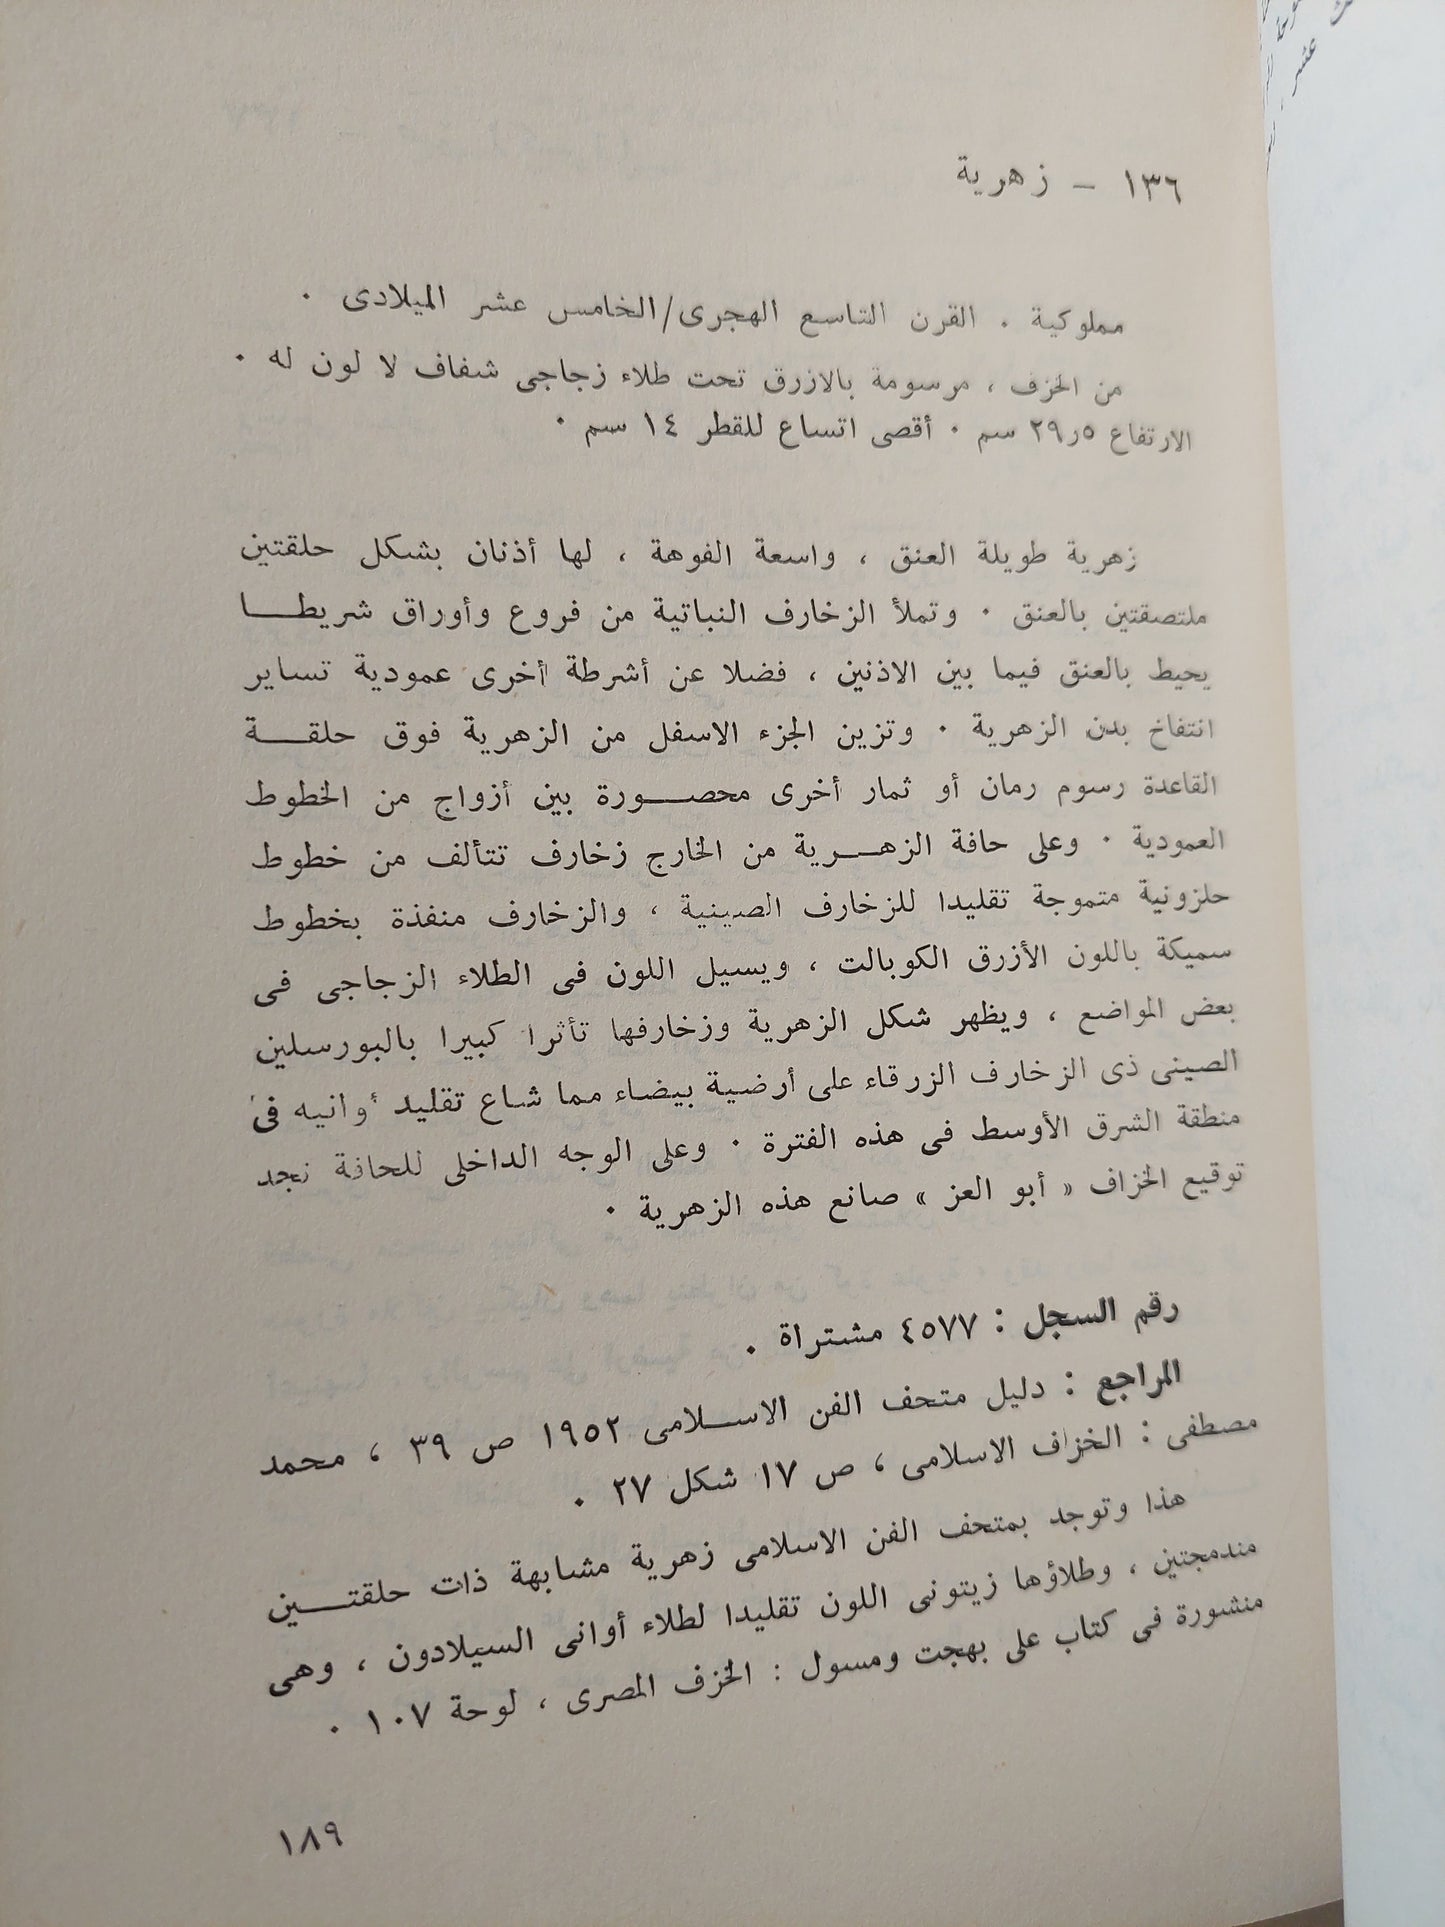 ١٣٦ - زهرية
مملوكية . القرن التاسع الهجرى/الخامس عشر الميلادى .
من الخزف ، مرسومة بالازرق تحت طلاء زجاجى شفاف لا لون له .
الارتفاع ٢٩٫٥ سم . أقصى اتساع للقطر ١٤ سم .
زهرية طويلة العنق ، واسعة الفوهة ، لها أذنان بشكل حلقتين
ملتصقتين بالعنق . وتملأ الزخارف النباتية من فروع وأوراق شريطا
يحيط بالعنق فيما بين الاذنين ، فضلا عن أشرطة أخرى عمودية تساير
انتفاخ بدن الزهرية . وتزين الجزء الاسفل من الزهرية فوق حلقة
القاعدة رسوم رمان أو ثمار أخرى محصورة بين أزواج من الخطوط
العمودية . وعلى حافة الزهرية من الخارج زخارف تتألف من خطوط
حلزونية متموجة تقليدا للزخارف الصينية ، والزخارف منفذة بخطوط
سميكة باللون الأزرق الكوبالت ، ويسيل اللون فى الطلاء الزجاجى فى
بعض المواضع ، ويظهر شكل الزهرية وزخارفها تأثرا كبيرا بالبورسلين
الصينى ذى الزخارف الزرقاء على أرضية بيضاء مما شاع تقليد أوانيه فى
منطقة الشرق الأوسط فى هذه الفترة . وعلى الوجه الداخلى للحافة نجد
توقيع الخزاف « أبو العز » صانع هذه الزهرية .
رقم السجل : ٤٥٧٧ مشتراة .
المراجع : دليل متحف الفن الاسلامى ١٩٥٢ ص ٣٩ ، محمد
مصطفى : الخزاف الاسلامى ، ص ١٧ شكل ٢٧ .
هذا وتوجد بمتحف الفن الاسلامى زهرية مشابهة ذات حلقتين
مندمجتين ، وطلاؤها زيتونى اللون تقليدا لطلاء أوانى السيلادون ، وهى
منشورة فى كتاب على بهجت ومسول : الخزف المصرى ، لوحة ١٠٧ .
١٨٩